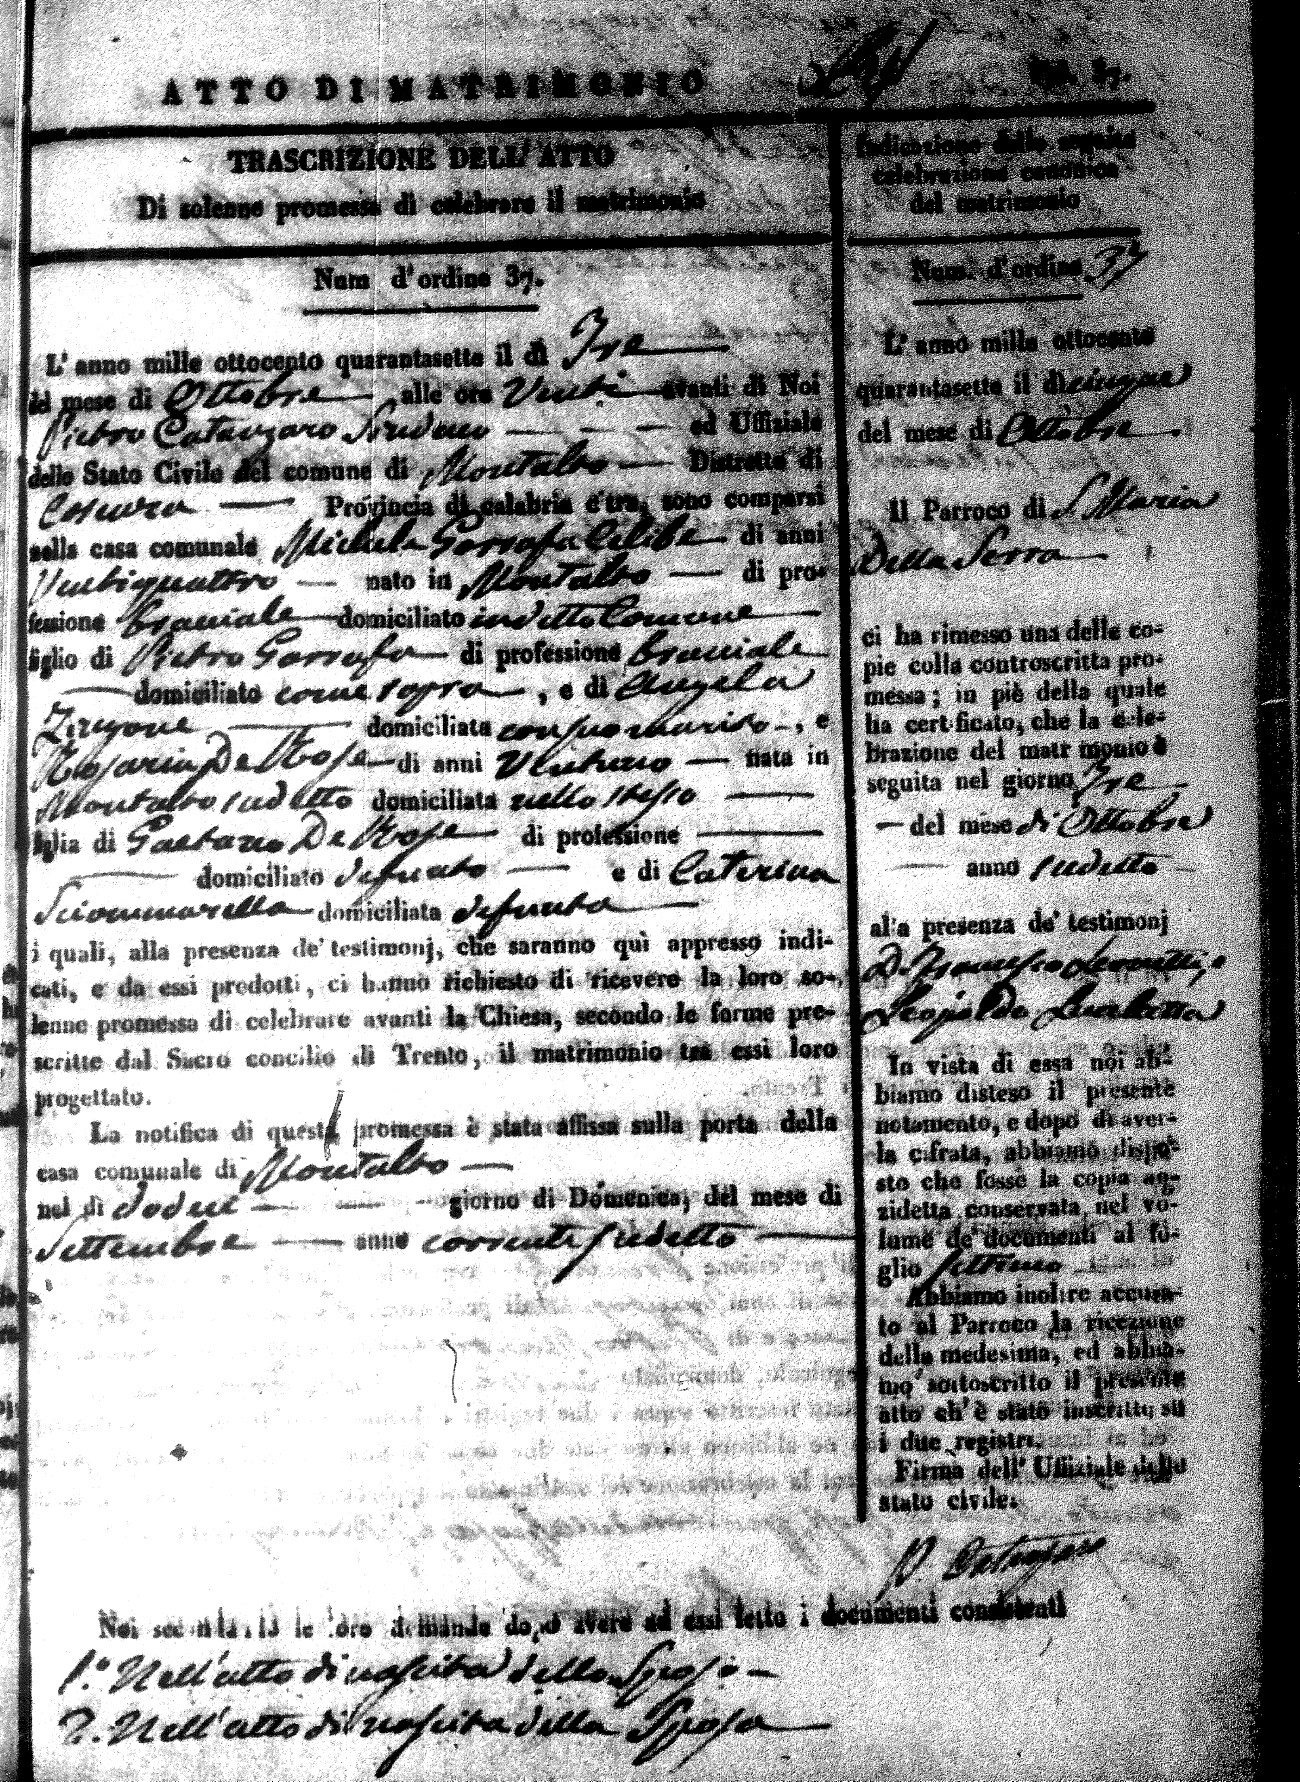 ATTO DI MATRIMONIO
37.
TRASCRIZIONE DELL' ATTO
Di solenne promessa di celebrare il matrimonio
Num d'ordine 37.
L' anno mille ottocento quarantasette il dì Tre
del mese di Ottobre alle ore Venti avanti di Noi
Pietro Catanzaro Sindaco ed Uffiziale
dello Stato Civile del comune di Montalto Distretto di
Cosenza Provincia di calabria citra, sono comparsi
nella casa comunale Michele Garrafa Celibe di anni
Ventiquattro nato in Montalto di pro-
fessione bracciale domiciliato in detto Comune
figlio di Pietro Garrafa di professione bracciale
domiciliato come sopra , e di Angela
Zingone domiciliata con suo marito , e
Rosaria De Rose di anni Ventuno nata in
Montalto sudetto domiciliata nello stesso
figlia di Gaetano De Rose di professione
domiciliato defunto e di Caterina
Sciammarella domiciliata defunta
i quali, alla presenza de' testimonj, che saranno quì appresso indi-
cati, e da essi prodotti, ci hanno richiesto di ricevere la loro so-
lenne promessa di celebrare avanti la Chiesa, secondo le forme pre-
scritte dal Sacro concilio di Trento, il matrimonio tra essi loro
progettato.
La notifica di questa promessa è stata affissa sulla porta della
casa comunale di Montalto
nel dì dodeci giorno di Domenica, del mese di
Settembre anno corrente sudetto
Indicazione della seguita
celebrazione canonica
del matrimonio
Num. d'ordine 37
L' anno mille ottocento
quarantasette il dì cinque
del mese di Ottobre
Il Parroco di S. Maria
Della Serra
ci ha rimesso una delle co-
pie colla controscritta pro-
messa; in piè della quale
ha certificato, che la cele-
brazione del matrimonio è
seguita nel giorno Tre
del mese di Ottobre
anno sudetto
alla presenza de' testimonj
D. Francesco
Leopoldo
In vista di essa noi ab-
biamo disteso il presente
notamento, e dopo di aver-
la cifrata, abbiamo dispo-
sto che fosse la copia an-
zidetta conservata nel vo-
lume de' documenti al fo-
glio settimo
Abbiamo inoltre accusa-
to al Parroco la ricezione
della medesima, ed abbia-
mo sottoscritto il presente
atto ch' è stato inscritto su
i due registri.
Firma dell' Uffiziale dello
stato civile.
P. Catanzaro
Noi secondando le loro domande dopo avere ad essi letto i documenti consistenti
1.° Nell'atto di nascita dello Sposo
2. Nell'atto di nascita della Sposa